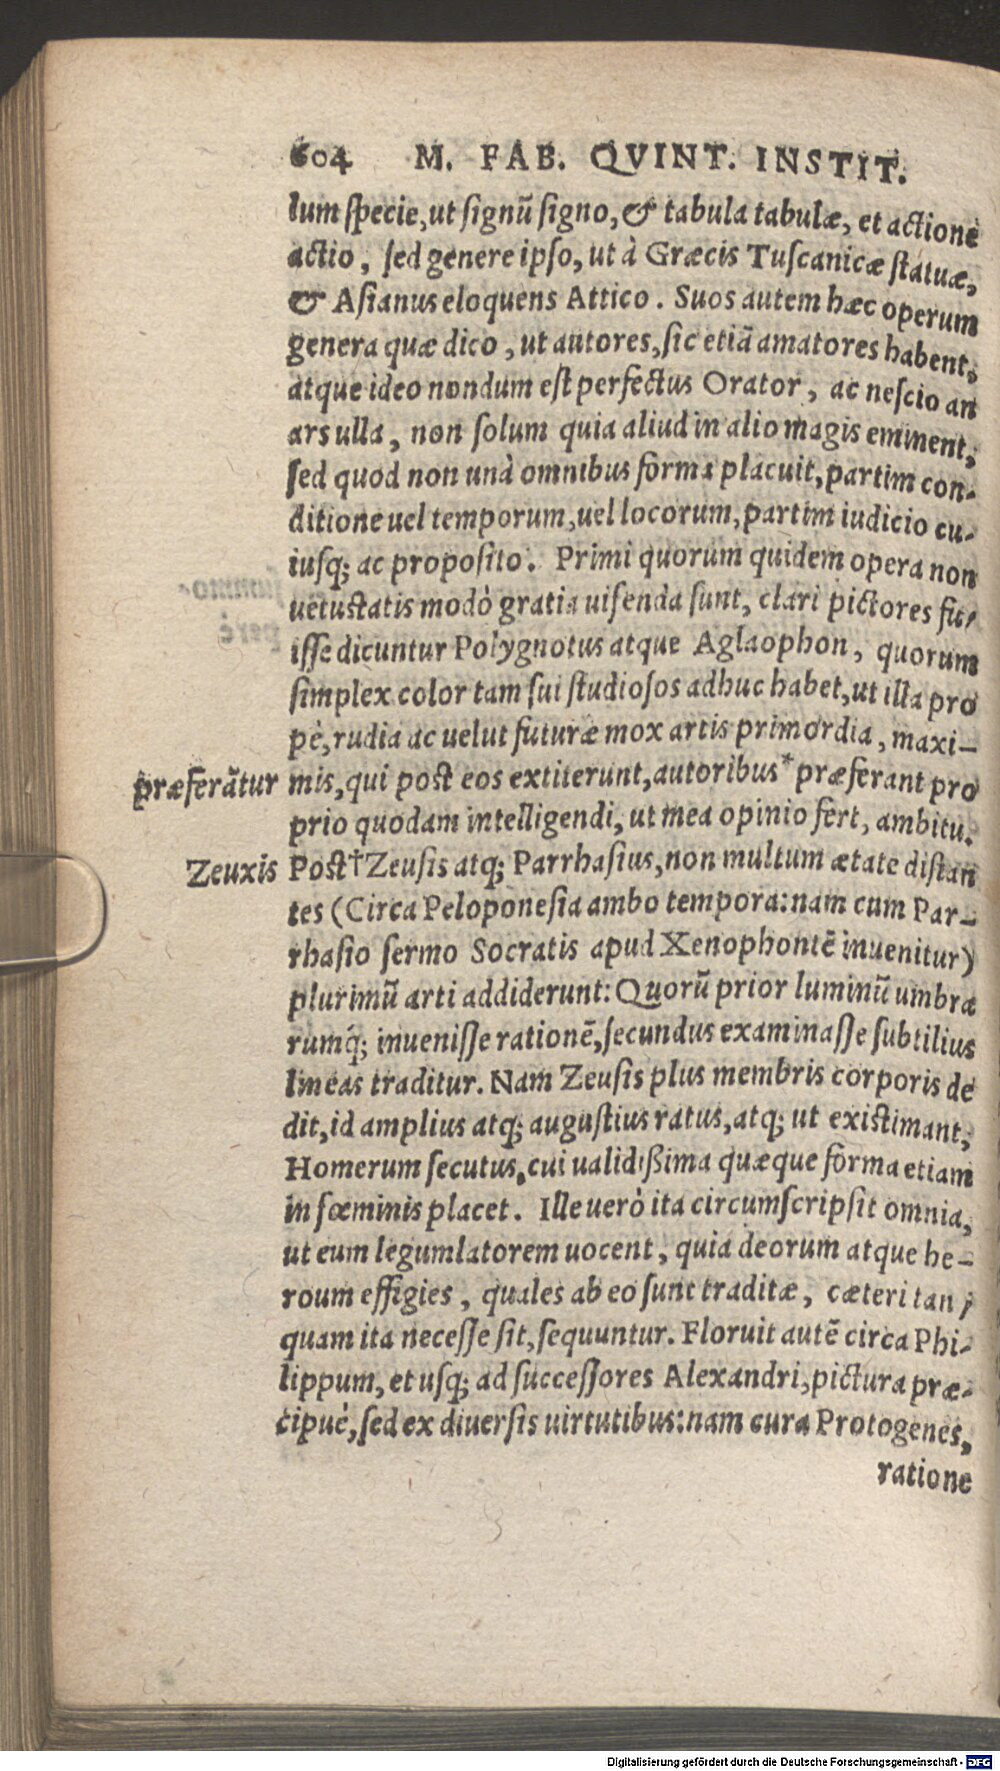 604 M. FAB. QVINT. INSTIT.
lum ſpecie, ut ſignũ ſigno, & tabula tabulæ, et actionẽ
actio, ſed genere ipſo, ut à Græcis Tuſcanicæ ſtatuæ,
& Aſianus eloquens Attico. Suos autem hæc operum
genera quæ dico, ut autores, ſic etiã amatores habent,
atque ideo nondum eſt perfectus Orator, ac neſcio an
ars ulla, non ſolum quia aliud in alio magis eminent,
ſed quod non unà omnibus forma placuit, partim con-
ditione uel temporum, uel locorum, partim iudicio cu-
iuſq; ac propoſito. Primi quorum quidem opera non
uetuſtatis modò gratia uiſenda ſunt, clari pictores fu-
iſſe dicuntur Polygnotus atque Aglaophon, quorum
ſimplex color tam ſui ſtudioſos adhuc habet, ut illa pro
pè, rudia ac uelut futuræ mox artis primordia, maxi-
præferãtur mis, qui poſt eos extiterunt, autoribus* præferant pro
prio quodam intelligendi, ut mea opinio fert, ambitu.
Zeuxis Poſt†Zeuſis atq; Parrhaſius, non multum ætate diſtan
tes (Circa Peloponeſia ambo tempora: nam cum Par-
rhaſio ſermo Socratis apud Xenophontẽ inuenitur)
plurimũ arti addiderunt: Quorũ prior luminũ umbra
rumq́; inueniſſe rationẽ, ſecundus examinaſſe ſubtilius
lineas traditur. Nam Zeuſis plus membris corporis de
dit, id amplius atq; auguſtius ratus, atq; ut exiſtimant,
Homerum ſecutus, cui ualidißima quæque forma etiam
in fœminis placet. Ille uerò ita circumſcripſit omnia,
ut eum legumlatorem uocent, quia deorum atque he-
roum effigies, quales ab eo ſunt traditæ, cæteri tan
quam ita neceſſe ſit, ſequuntur. Floruit autẽ circa Phi-
lippum, et uſq; ad ſucceſſores Alexandri, pictura præ-
cipuè, ſed ex diuerſis uirtutibus: nam cura Protogenes,
ratione
Digitalisierung gefördert durch die Deutsche Forschungsgemeinschaft - DFG